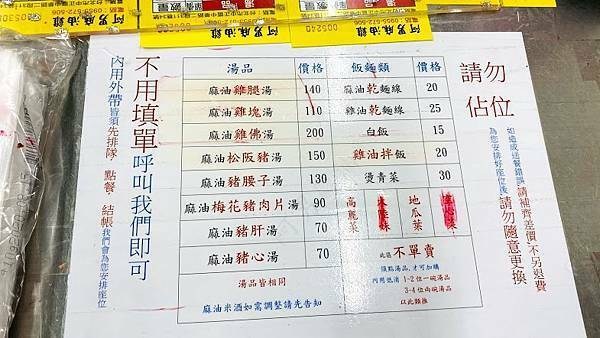 阿男麻油雞
005240
請勿
佔位
如造成送餐錯誤請補齊差價不另退費
為您安排好座位後請勿隨意更換
湯品 價格
麻油雞腿湯 140
麻油雞塊湯 110
麻油雞佛湯 200
麻油松阪豬湯 150
麻油豬腰子湯 130
麻油梅花豬肉片湯 90
麻油豬肝湯 70
麻油豬心湯 70
湯品皆相同
麻油米酒如需調整請先告知
飯麵類 價格
麻油乾麵線 20
雞油乾麵線 25
白飯 15
雞油拌飯 20
燙青菜 30
高麗菜
地瓜葉
此區不單賣
須點湯品,才可加購
內用低消 1-2位一碗湯品
3-4位兩碗湯品
以此類推
不用填單呼叫我們即可
內用外帶皆須先排隊、點餐、結帳我們會為您安排座位